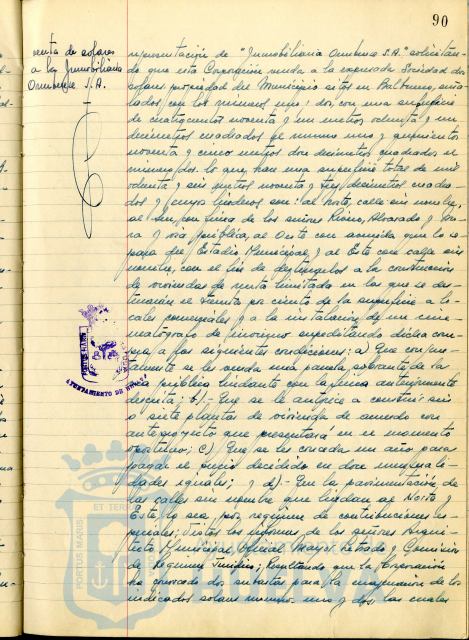 90
venta de solares
a la Inmobiliaria
Onubense S.A.
representación de "Inmobiliaria Onubense S.A." solicitan-
do que esta Corporación venda a la expresada Sociedad dos
solares propiedad del Municipio sitos en Balbueno, seña-
lados con los números uno y dos, con una superficie
de cuatrocientos noventa y un metros ochenta y un
decímetros cuadrados el número uno y quinientos
noventa y cinco metros doce decímetros cuadrados el
número dos lo que hace una superficie total de mil
ochenta y seis metros noventa y tres decímetros cuadra-
dos y cuyos linderos son: al Norte, calle sin nombre,
al Sur con finca de los señores Rioja, Alvarado y Mo-
ra y vía pública, al Oeste con avenida que lo se-
para del Estadio Municipal y al Este con calle sin
nombre, con el fin de destinarlos a la construcción
de viviendas de renta limitada en las que se des-
tinarán el treinta por ciento de la superficie a lo-
cales comerciales y a la instalación de un cine-
matógrafo de invierno supeditando dicha com-
pra a las siguientes condiciones: a) Que conjun-
tamente se le venda una parcela sobrante de la
vía pública lindante con la finca anteriormente
descrita; b).- Que se le autorice a construir seis
o siete plantas de vivienda de acuerdo con
anteproyecto que presentará en el momento
oportuno; c) Que se les conceda un año para
pagar el precio decidido en doce mensuali-
dades iguales; y d).- Que la pavimentación de
las calles sin nombre que lindan al Norte y
Este lo sea por régimen de contribuciones es-
peciales; Vistos los informes de los señores Arqui-
tecto Municipal, Oficial Mayor Letrado y Comisión
de Régimen Jurídico; Resultando que la Corporación
ha convocado dos subastas para la enajenación de los
indicados solares número uno y dos las cuales
AYUNTAMIENTO DE HUELVA
PORTUS MARIS
ET TERRAE